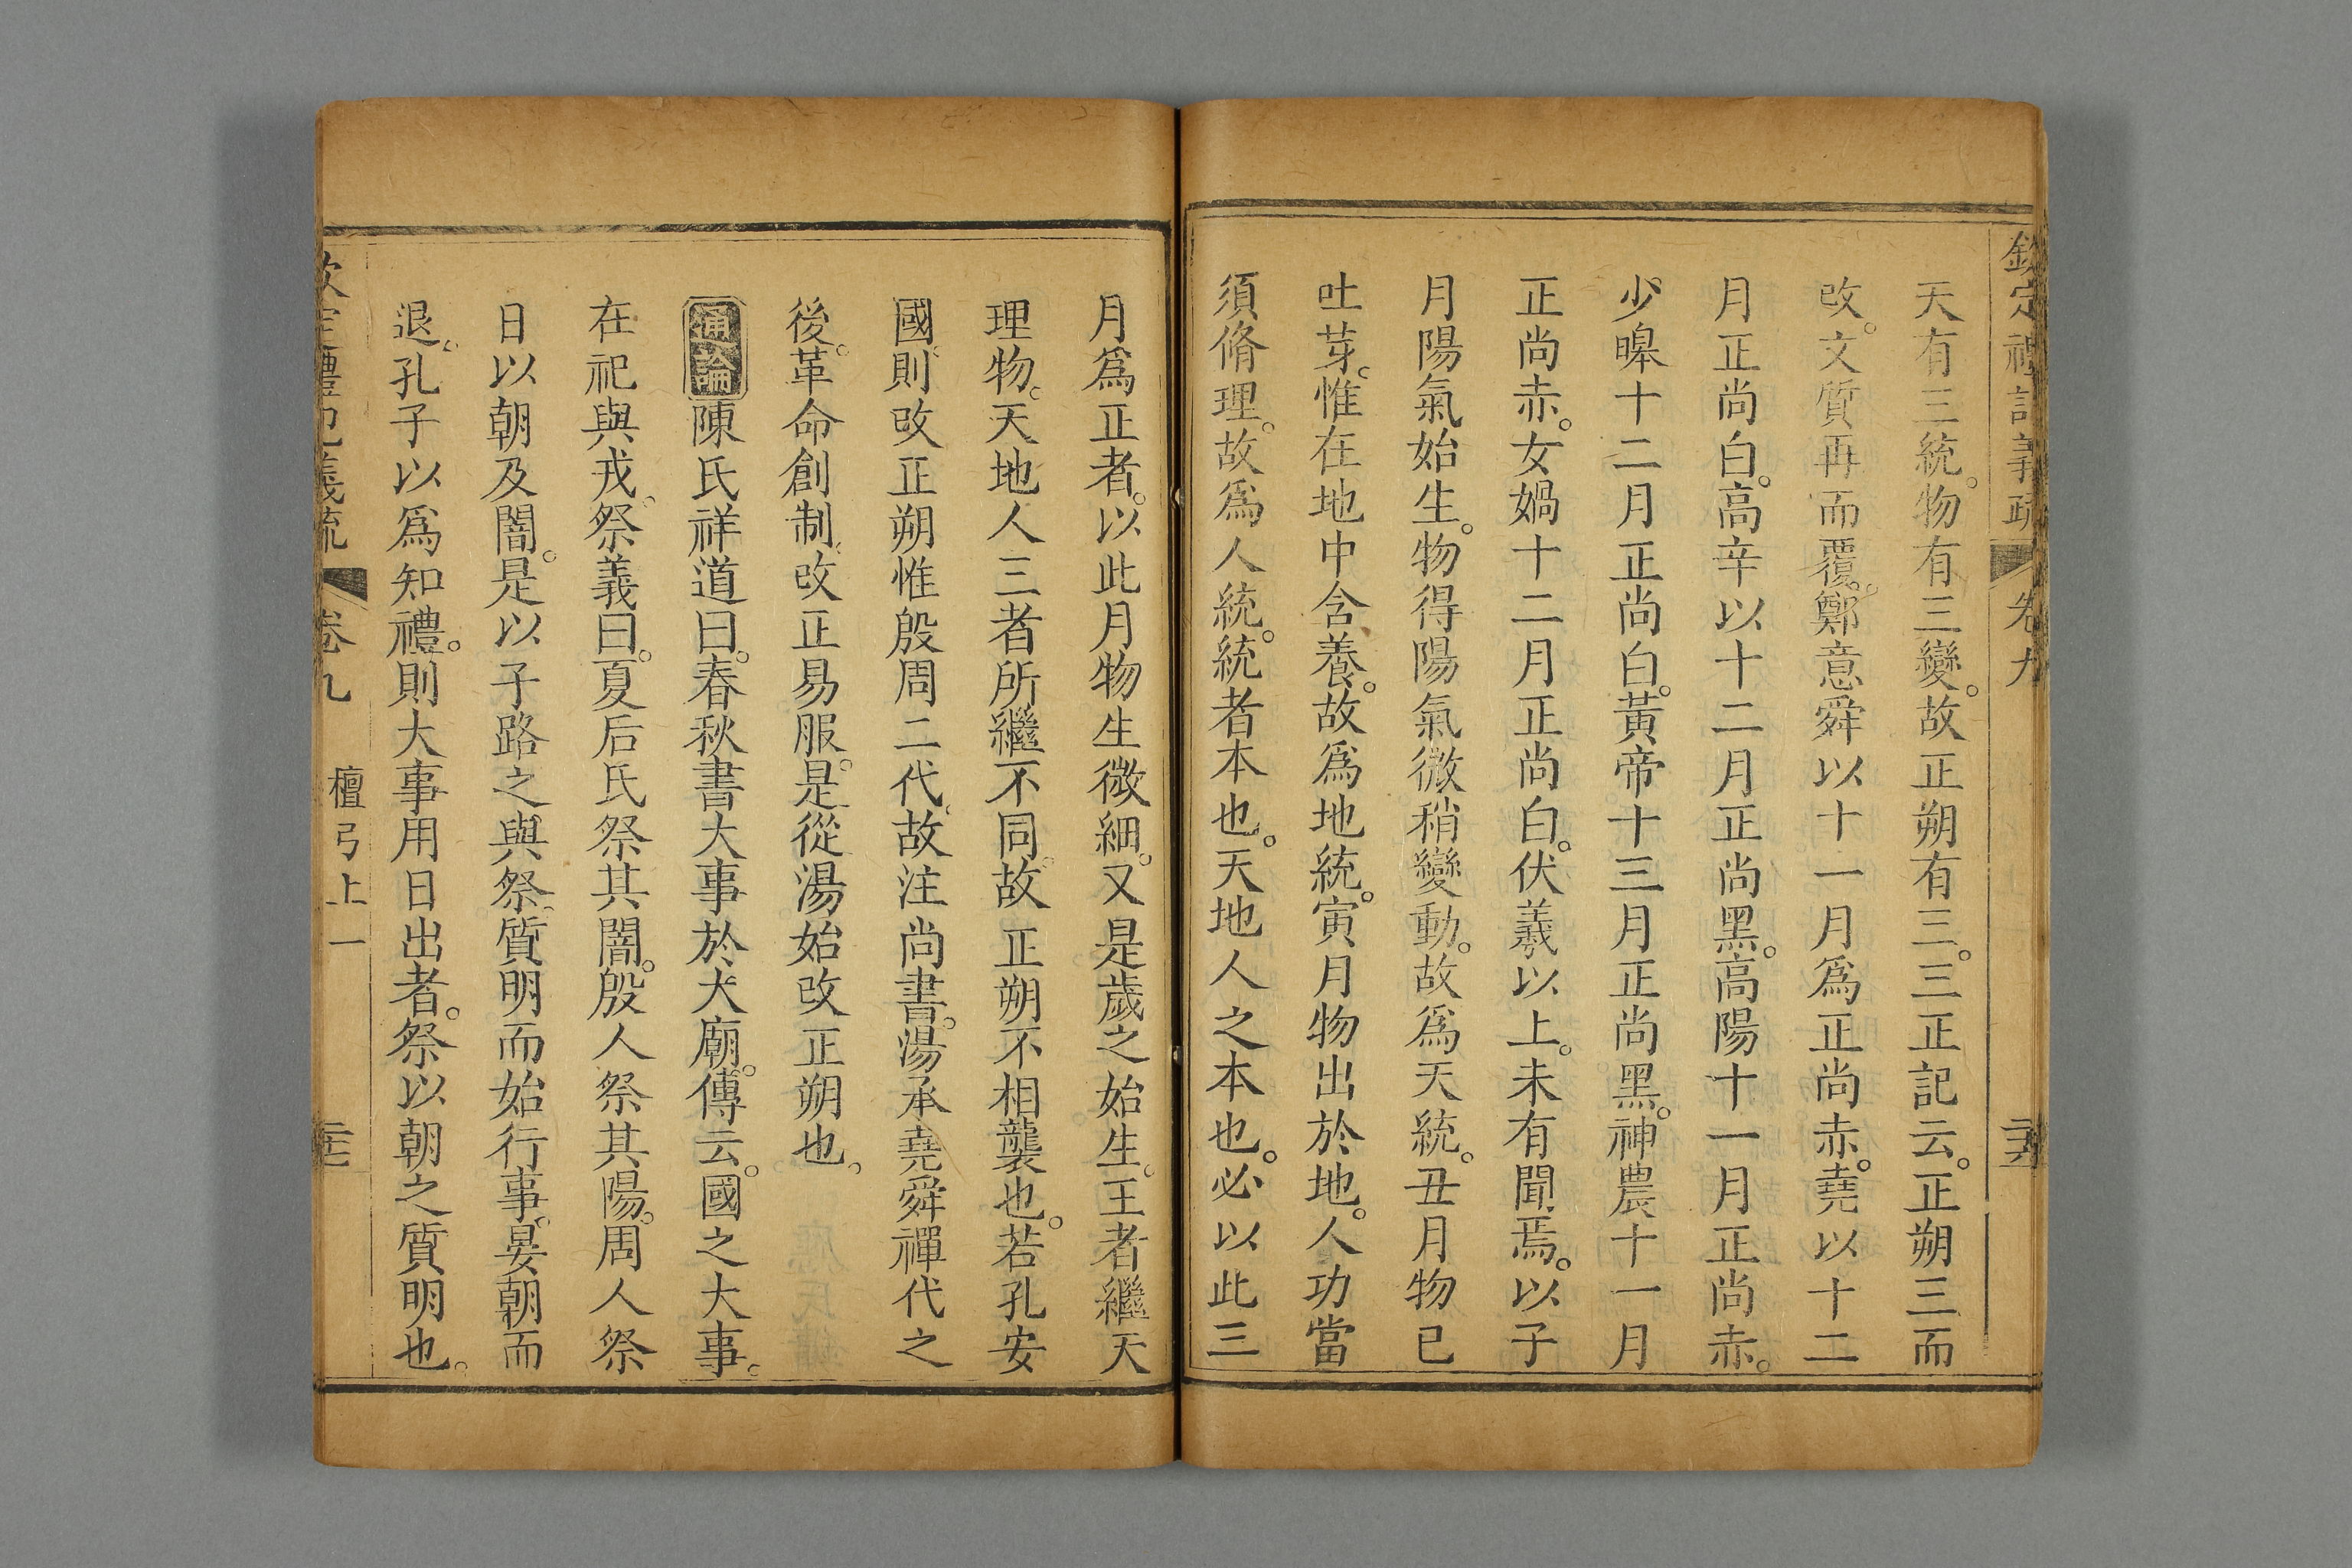 欽定禮記義疏 卷九 二十六
天有三統。物有三變。故正朔有三。三正記云。正朔三而
改。文質再而覆。鄭意舜以十一月爲正尚赤。堯以十二
月正尚白。高辛以十二月正尚黑。高陽十一月正尚赤。
少皞十二月正尚白。黃帝十三月正尚黑。神農十一月
正尚赤。女媧十二月正尚白。伏羲以上。未有聞焉。以子
月陽氣始生。物得陽氣微稍變動。故爲天統。丑月物已
吐芽。惟在地中含養。故爲地統。寅月物出於地。人功當
須脩理。故爲人統。統者本也。天地人之本也。必以此三
月爲正者。以此月物生微細。又是歲之始生。王者繼天
理物。天地人三者所繼不同。故正朔不相襲也。若孔安
國則改正朔惟殷周二代。故注尚書。湯承堯舜禪代之
後。革命創制。改正易服。是從湯始改正朔也。
通論陳氏祥道曰。春秋書大事於大廟。傳云。國之大事。
在祀與戎。祭義曰。夏后氏祭其闇。殷人祭其陽。周人祭
日以朝及闇。是以子路之與祭。質明而始行事。晏朝而
退。孔子以爲知禮。則大事用日出者。祭以朝之質明也。
欽定禮記義疏 卷九 檀弓上一